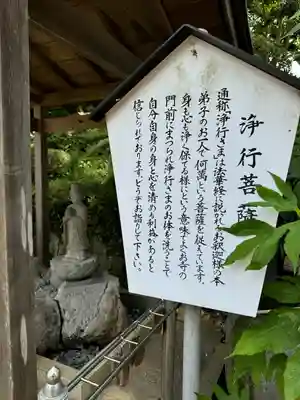 浄行菩薩
通称「浄行さま」は法華経に説かれるお釈迦様の本
弟子のお一人で何萬という菩薩を従えています。
身も心も浄く保てる様にという意味でよくお寺の
門前にまつられ浄行さまのお体を洗うことで
自分自身の身と心を清める利益があると
信じられております。どうぞお詣り下さい。